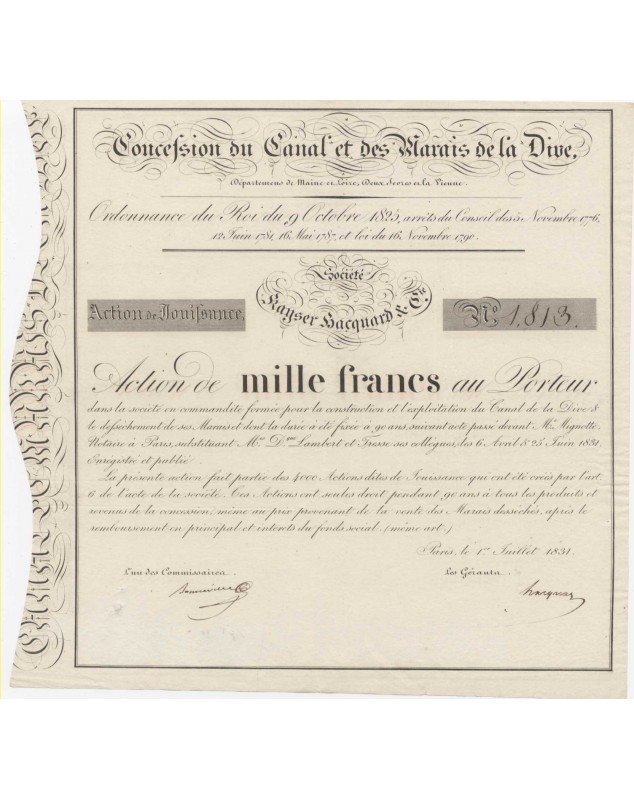 Concession du Canal et des Marais de la Dive,
Départemens de Maine et Loire, Deux Sevres et la Vienne.
Ordonnance du Roi du 9 Octobre 1825, arrêts du Conseil des 5 Novembre 1776,
12 Juin 1781, 16 Mai 1787, et loi du 16 Novembre 1790.
Société
Kayser Hacquard & Cie
Action de Jouissance,
No 1,813.
Action de mille francs au Porteur
dans la société en commandite formée pour la construction et l'exploitation du Canal de la Dive &
le defrichement de ses Marais et dont la durée a été fixée à 90 ans, suivant acte passé devant Me Mignotte,
Notaire à Paris, substituant Mes Dme Lambert et Tresse ses collègues, les 6 Avril & 25 Juin 1831.
Enregistré et publié.
La présente action fait partie des 4000 Actions dites de Jouissance qui ont été créés par l'art.
6 de l'acte de la société. Ces Actions ont seules droit pendant 90 ans à tous les produits et
revenus de la concession, même au prix provenant de la vente des Marais desséchés, après le
remboursement en principal et interets du fonds social. (même art.)
Paris, le 1er Juillet 1831.
L'un des Commissaires
Les Gérants
hacquar